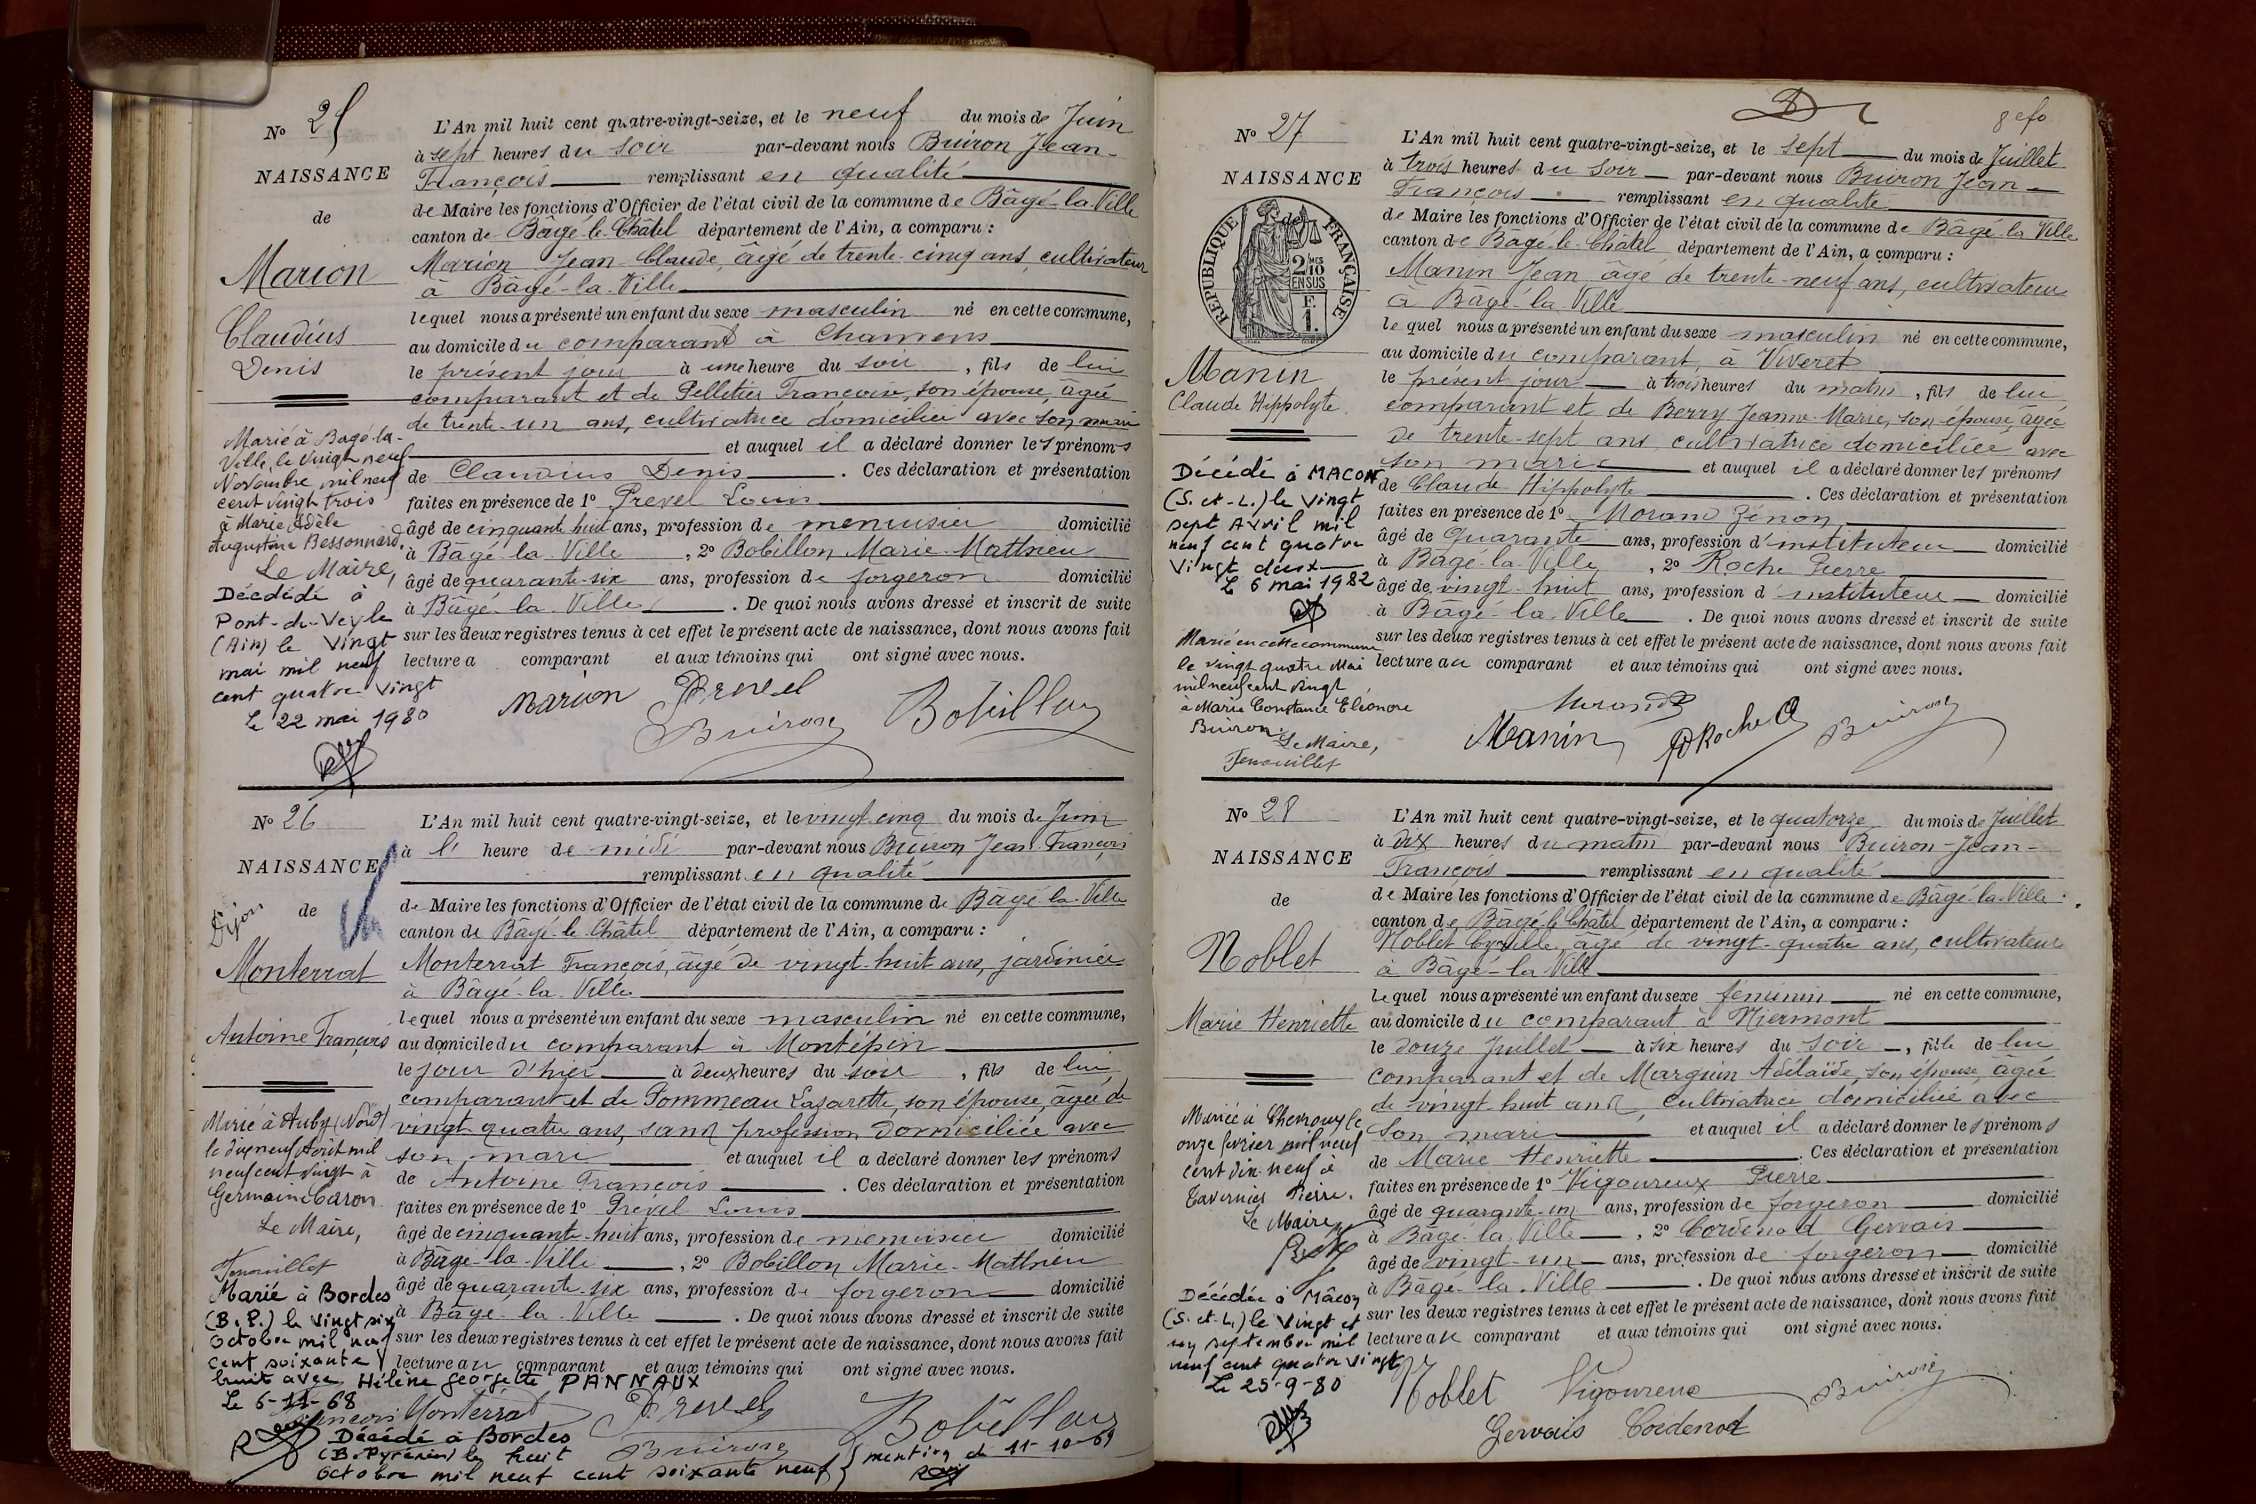 N° 25
NAISSANCE
de
Marion
Claudius
Denis
Marié à Bagé-la-
Ville, le vingt neuf
Novembre mil neuf
cent vingt trois
à Marie Adèle
Augustine Bessonnard
Le Maire,
Décédé à
Pont-de-Veyle
(Ain) le Vingt
mai mil neuf
cent quatre vingt
Le 22 mai 1980
L'An mil huit cent quatre-vingt-seize, et le neuf du mois de Juin
à sept heures du soir par-devant nous Buiron Jean-
François remplissant en qualité
de Maire les fonctions d'Officier de l'état civil de la commune de Bâgé-la-Ville
canton de Bâgé-le-Châtel département de l'Ain, a comparu :
Marion Jean Claude, âgé de trente-cinq ans, cultivateur
à Bâgé-la-Ville
lequel nous a présenté un enfant du sexe masculin né en cette commune,
au domicile du comparant à Chamens
le présent jour à une heure du soir, fils de lui
comparant et de Pelletier Françoise, son épouse, âgée
de trente-un ans, cultivatrice domiciliée avec son mari
et auquel il a déclaré donner les prénoms
de Claudius Denis. Ces déclaration et présentation
faites en présence de 1° Prevel Louis
âgé de cinquante-huit ans, profession de menuisier domicilié
à Bâgé-la-Ville, 2° Bobillon Marie-Mathieu
âgé de quarante-six ans, profession de forgeron domicilié
à Bâgé-la-Ville. De quoi nous avons dressé et inscrit de suite
sur les deux registres tenus à cet effet le présent acte de naissance, dont nous avons fait
lecture a comparant et aux témoins qui ont signé avec nous.
Marion Prevel
Buiron Bobillon
N° 26
NAISSANCE
de
Dijon
Monterrat
Antoine François
Marié à Auby (Nord)
le dix neuf Août mil
neuf cent vingt à
Germaine Caron
Le Maire,
Fenouillet
Marié à Bordes
(B.P.) le vingt six
Octobre mil neuf
cent soixante
huit avec Hélène Georgette PANNAUX
Le 6-11-68
L'An mil huit cent quatre-vingt-seize, et le vingt-cinq du mois de Juin
à l' heure de midi par-devant nous Buiron Jean-François
remplissant en qualité
de Maire les fonctions d'Officier de l'état civil de la commune de Bâgé-la-Ville
canton de Bâgé-le-Châtel département de l'Ain, a comparu :
Monterrat François, âgé de vingt-huit ans, jardinier
à Bâgé-la-Ville
lequel nous a présenté un enfant du sexe masculin né en cette commune,
au domicile du comparant à Montépin
le jour d'hier à deux heures du soir, fils de lui
comparant et de Pommeau Lazarette, son épouse, âgée de
vingt-quatre ans, sans profession domiciliée avec
son mari et auquel il a déclaré donner les prénoms
de Antoine François. Ces déclaration et présentation
faites en présence de 1° Prével Louis
âgé de cinquante-huit ans, profession de menuisier domicilié
à Bâgé-la-Ville, 2° Bobillon Marie-Mathieu
âgé de quarante-six ans, profession de forgeron domicilié
à Bâgé-la-Ville. De quoi nous avons dressé et inscrit de suite
sur les deux registres tenus à cet effet le présent acte de naissance, dont nous avons fait
lecture au comparant et aux témoins qui ont signé avec nous.
François Monterrat Prevel
Buiron Bobillon
Décédé à Bordes
(B. Pyrénées) le huit
octobre mil neuf cent soixante neuf } mention du 11-10-69
8 efo
N° 27
NAISSANCE
de
REPUBLIQUE FRANÇAISE
2/10 EN SUS
F. 1.
Manin
Claude Hippolyte
Décédé à MACON
(S.-et-L.) le vingt
sept Avril mil
neuf cent quatre
vingt deux
Le 6 mai 1982
Marié en cette commune
le vingt quatre Mai
mil neuf cent vingt
à Marie Constance Eléonore
Buiron.
Le Maire,
Fenouillet
L'An mil huit cent quatre-vingt-seize, et le sept du mois de Juillet
à trois heures du soir par-devant nous Buiron Jean-
François remplissant en qualité
de Maire les fonctions d'Officier de l'état civil de la commune de Bâgé-la-Ville
canton de Bâgé-le-Châtel département de l'Ain, a comparu :
Manin Jean âgé de trente-neuf ans, cultivateur
à Bâgé-la-Ville
lequel nous a présenté un enfant du sexe masculin né en cette commune,
au domicile du comparant, à Viveret
le présent jour à trois heures du matin, fils de lui
comparant et de Berry Jeanne-Marie, son épouse, âgée
de trente-sept ans, cultivatrice domiciliée avec
son mari et auquel il a déclaré donner les prénoms
de Claude Hippolyte. Ces déclaration et présentation
faites en présence de 1° Morand Zénon
âgé de quarante ans, profession d'instituteur domicilié
à Bâgé-la-Ville, 2° Roche Pierre
âgé de vingt-huit ans, profession d'instituteur domicilié
à Bâgé-la-Ville. De quoi nous avons dressé et inscrit de suite
sur les deux registres tenus à cet effet le présent acte de naissance, dont nous avons fait
lecture au comparant et aux témoins qui ont signé avec nous.
Morand
Manin Roche Buiron
N° 28
NAISSANCE
de
Noblet
Marie Henriette
Mariée à Chevroux le
onze février mil neuf
cent dix-neuf à
Tavernier Pierre.
Le Maire,
Décédée à Mâcon
(S.-et-L.) le vingt et
un septembre mil
neuf cent quatre vingt
Le 25-9-80
L'An mil huit cent quatre-vingt-seize, et le quatorze du mois de Juillet
à dix heures du matin par-devant nous Buiron-Jean-
François remplissant en qualité
de Maire les fonctions d'Officier de l'état civil de la commune de Bâgé-la-Ville
canton de Bâgé-le-Châtel département de l'Ain, a comparu :
Noblet Cyrille, âgé de vingt-quatre ans, cultivateur
à Bâgé-la-Ville
lequel nous a présenté un enfant du sexe féminin né en cette commune,
au domicile du comparant à Niermont
le douze Juillet à six heures du soir, fille de lui
comparant et de Marguin Adélaïde, son épouse, âgée
de vingt-huit ans, cultivatrice domiciliée avec
son mari et auquel il a déclaré donner les prénoms
de Marie Henriette. Ces déclaration et présentation
faites en présence de 1° Vigoureux Pierre
âgé de quarante-un ans, profession de forgeron domicilié
à Bâgé-la-Ville, 2° Cordenod Gervais
âgé de vingt-un ans, profession de forgeron domicilié
à Bâgé-la-Ville. De quoi nous avons dressé et inscrit de suite
sur les deux registres tenus à cet effet le présent acte de naissance, dont nous avons fait
lecture au comparant et aux témoins qui ont signé avec nous.
Noblet Vigoureux Buiron
Gervais Cordenod